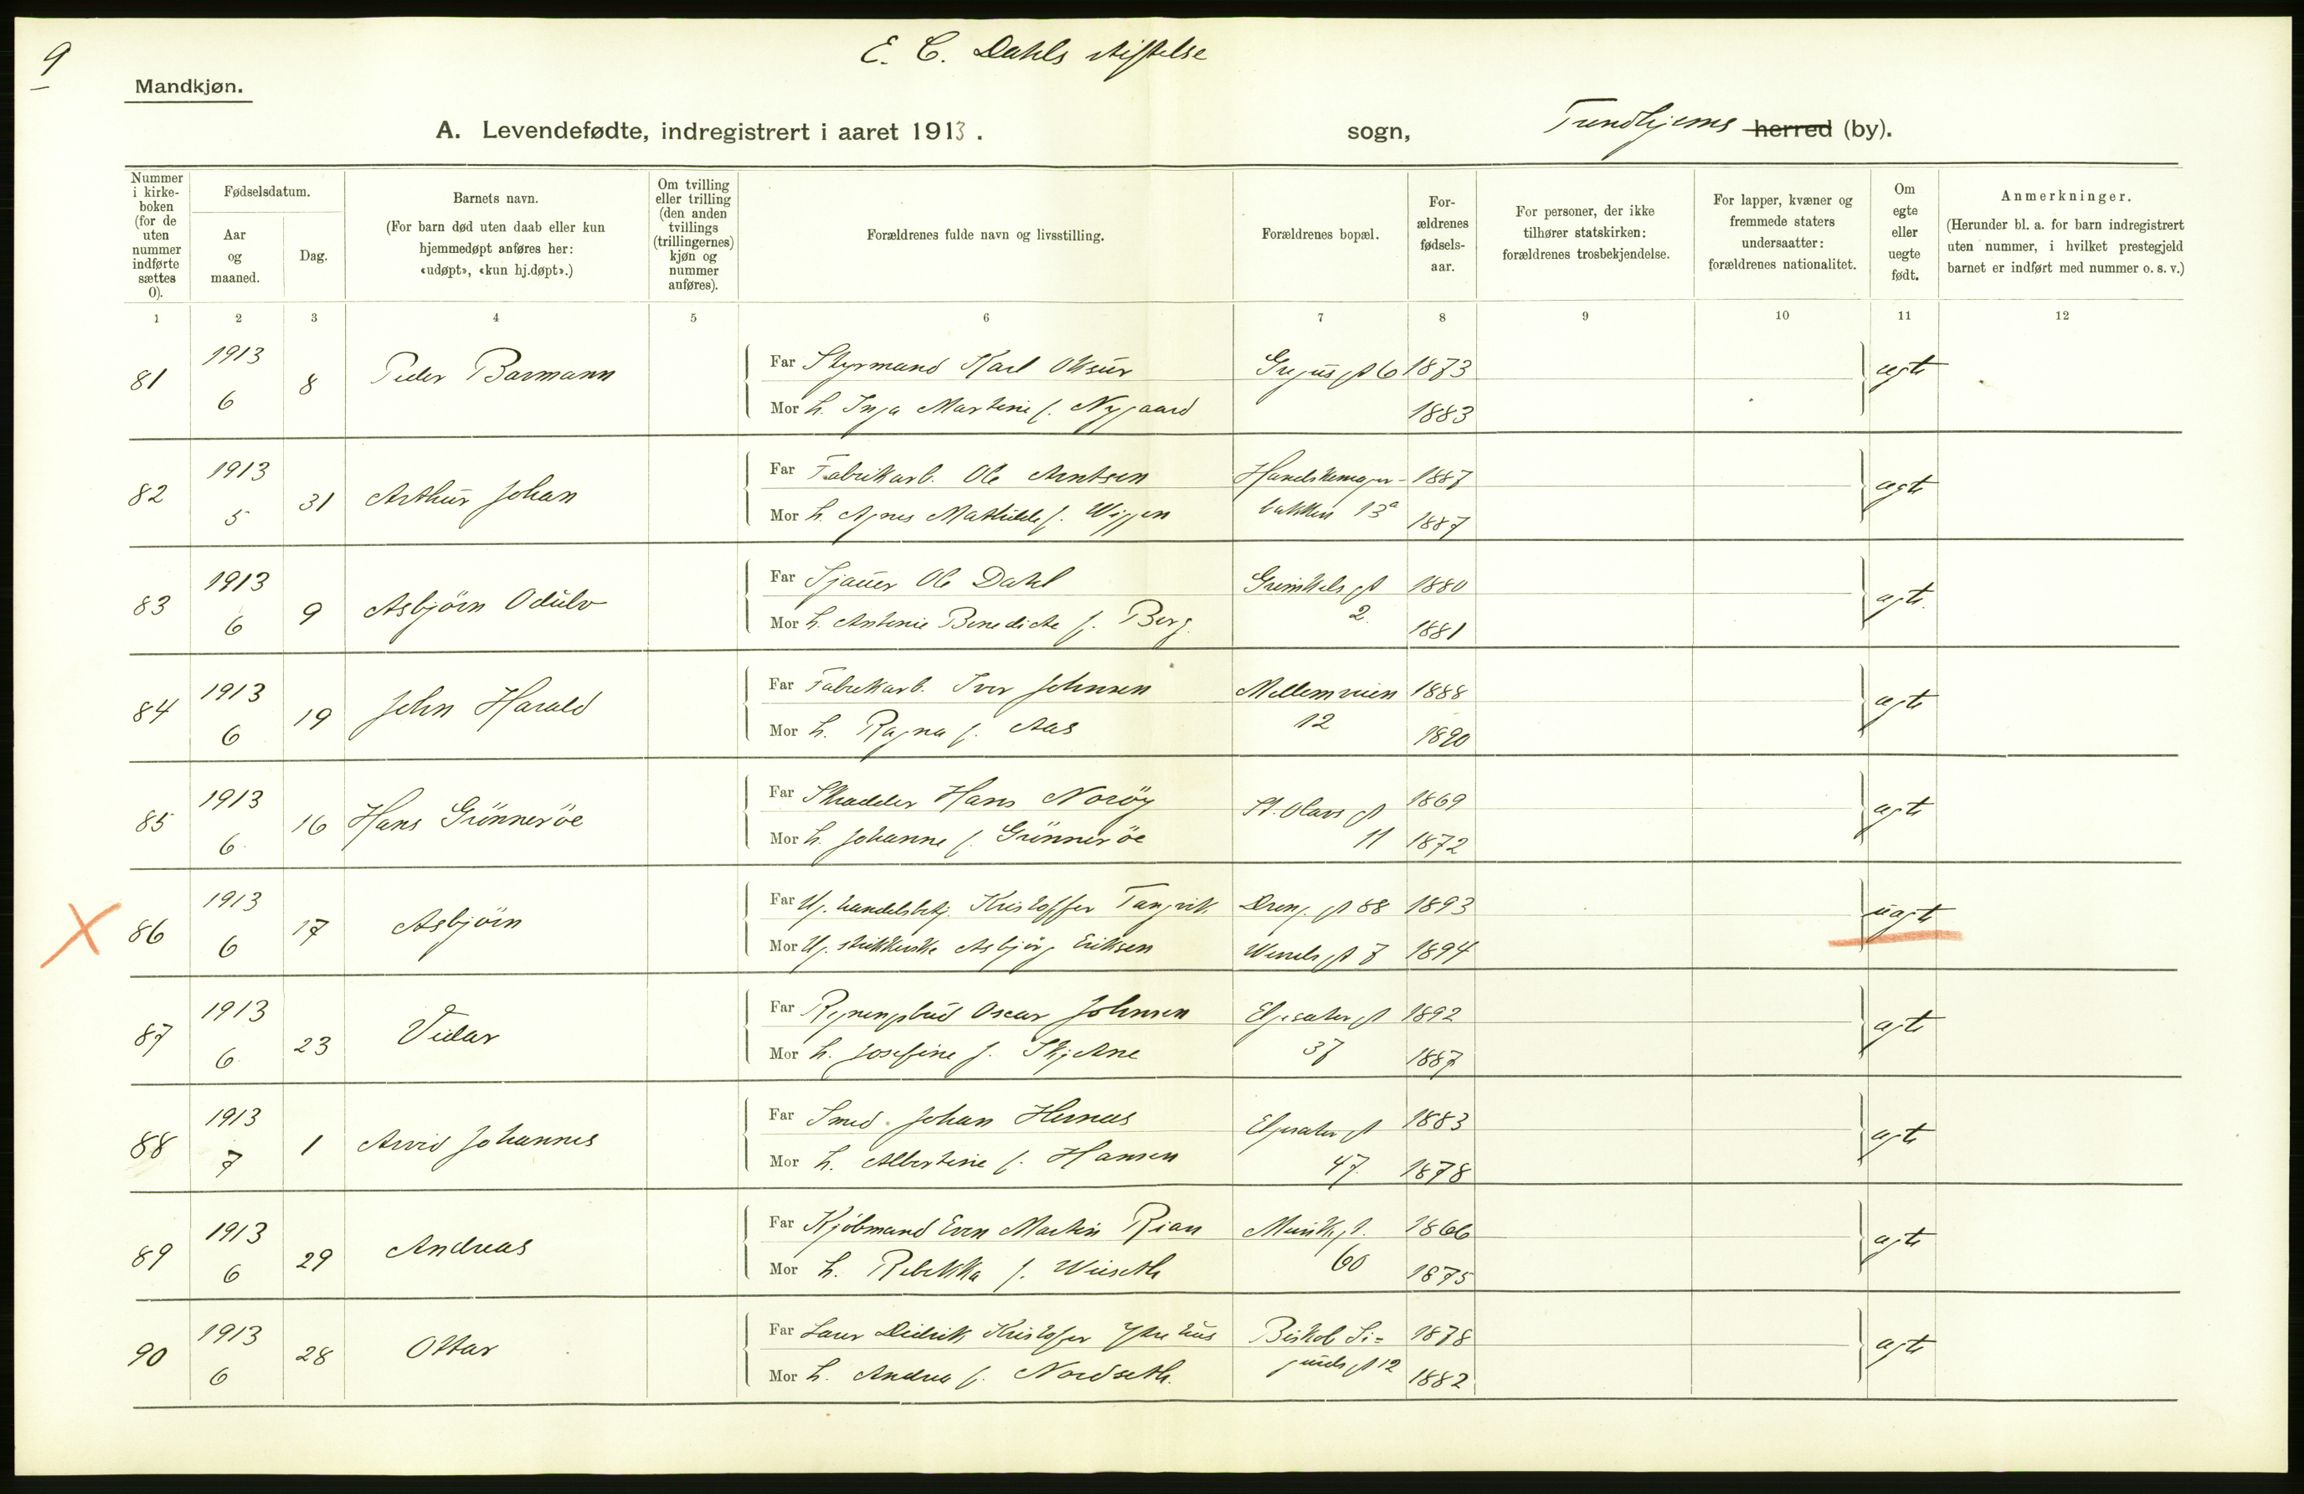 9
E. C. Dahls stiftelse
Mandkjøn.
A. Levendefødte, indregistrert i aaret 1913.
sogn,
Trondhjems herred (by).
Nummer i kirke-boken (for de uten nummer indførte sættes 0).
Fødselsdatum.
Aar og maaned.
Dag.
Barnets navn.
(For barn død uten daab eller kun hjemmedøpt anføres her: «udøpt», «kun hj.døpt».)
Om tvilling eller trilling (den anden tvillings (trillingernes) kjøn og nummer anføres).
Forældrenes fulde navn og livsstilling.
Forældrenes bopæl.
For-ældrenes fødsels-aar.
For personer, der ikke tilhører statskirken: forældrenes trosbekjendelse.
For lapper, kvæner og fremmede staters undersaatter: forældrenes nationalitet.
Om egte eller uegte født.
Anmerkninger.
(Herunder bl. a. for barn indregistrert uten nummer, i hvilket prestegjeld barnet er indført med nummer o. s. v.)
1 2 3 4 5 6 7 8 9 10 11 12
81 1913 6 8 Peder Barmann Far Styrmand Karl 1873 ægte
Mor h. Inga Martine f. Nygaard 1883
82 1913 5 31 Arthur Johan Far Fabrikarb. Ole Arntsen Handskemager- 1887 ægte
Mor h. Agnes Mathilde f. Wiggen bakken 13a 1887
83 1913 6 9 Asbjörn Odulv Far Sjauer Ole Dahl Grimkels gt 1880 ægte.
Mor h. Antonie Benedicte f. Berg. 2. 1881
84 1913 6 19 John Harald Far Fabrikarb. Iver Johnsen Mellemveien 1888 ægte
Mor h. Ragna f. Aas 12 1890
85 1913 6 16 Hans Grönneröe Far Skrædder Hans Noröy St. Olavs gt 1869 ægte
Mor h. Johanne f. Grönneröe 11 1872
86 1913 6 17 Asbjörn Far Ug. handelsbetj. Kristoffer Tangvik Dron. gt 88 1893 uægte
Mor Ug. strikkerske Asbjörg Eriksen gt 7 1894
87 1913 6 23 Vidar Far Oscar Johnsen Elgesæter gt 1892 ægte
Mor h. Josefine f. Skjetne 37 1887
88 1913 7 1 Arvid Johannes Far Smed Johan Hernes Elgesæter gt 1883 ægte
Mor h. Albertine f. Hansen 47. 1878
89 1913 6 29 Andreas Far Kjøbmand Even Martin Rian Munkegt. 1866 ægte
Mor h. Rebekka f. Wiiseth 60 1875
90 1913 6 28 Ottar Far Didrik Kristoffer Ytrehus Biskob Si= 1878 ægte
Mor h. Andrea f. Nordseth. gurds gt 12 1882